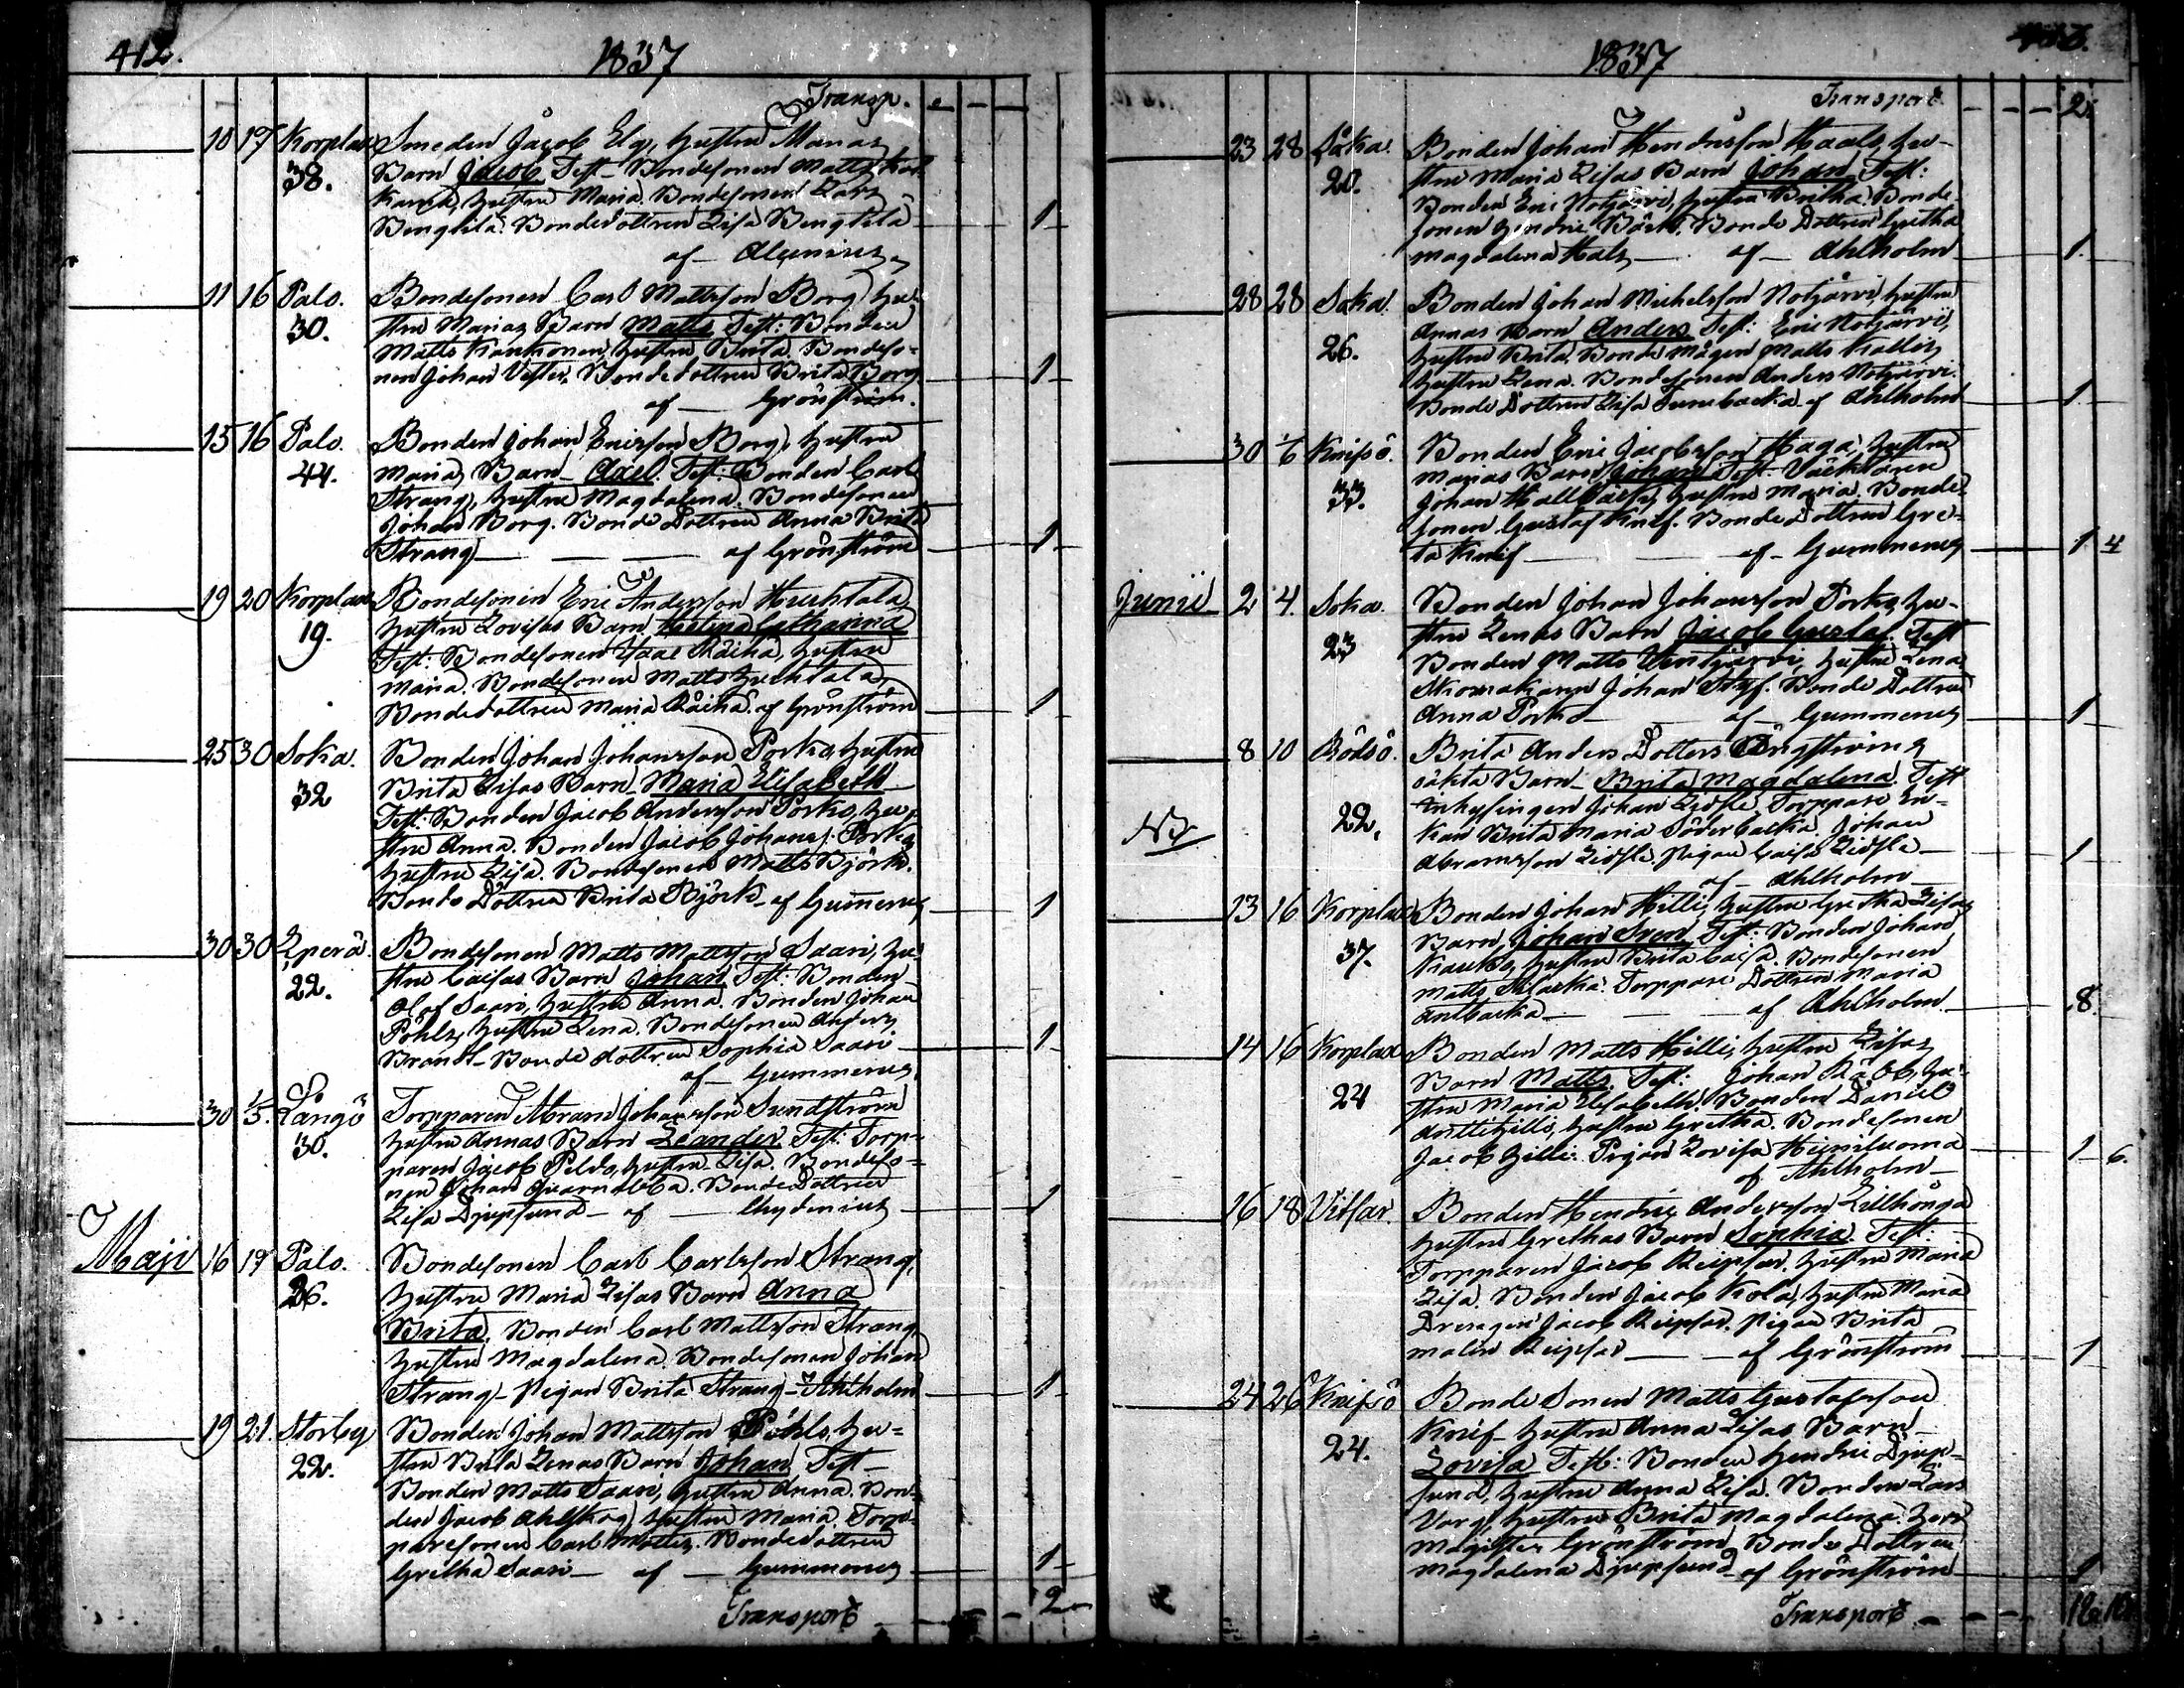 412.
1837
Transp.
10 17 Korplax Smeden Jacob Elg, hustru Marias
38. Barn Jacob Test- Bondesonen Matts
hustru Maria. Bondesonen Lars
Bengtila. Bondedottren Lisa Bengtila 1
af Alcenius
11 16 Palo. Bondesonen Carl Mattsson Borg hu-
30. stru Marias Barn Matts Test: Bonden
Matts Kankonen, hustru Brita. Bondeso-
nen Johan Vester. Bondedottren Brita Borg 1
af Grönström.
15 16 Palo. Bonden Johan Ericsson Borg, hustru
44. Marias Barn Axel. Test: Bonden Carl
Strang, hustru Magdalena. Bondesonen
Johan Borg. Bonde Dottren Anna Brita
Strang af Grönström 1
19 20 Korplax Bondesonen Eric Andersson Huchtala
19. hustru Lovisas Barn Catharina
Test: Bondesonen Isaac Räihä, hustru
Maria. Bondesonen Matts Huchtala
Bondedottren Maria Räihä. af Grönström 1
25 30 Soka. Bonden Johan Johansson Porko, hustru
32 Brita Lisas Barn Maria Elisabeth
Test: Bonden Jacob Andersson Porko, hu-
stru Anna. Bonden Jacob Johans: Porko
hustru Lisa. Bondesonen Matts Björk.
Bonde Dottren Brita Björk af Gummerus 1
30 30 Eperä Bondesonen Matts Mattsson Saari, hu-
22. stru Caisas Barn Johan Test: Bonden
Olof Saari, hustru Anna. Bonden Johan
Pöhls, hustru Lena. Bondesonen Anders
Brandt. Bonde dottren Sophia Saari 1
af Gummerus
30 1/5. Långö Torpparen Abram Johansson Sundström
30. hustru Annas Barn Leander Test: Torp-
paren Jacob Peldo, hustru Lisa. Bondeso-
nen Johan Bonde Dottren
Lisa Djupsund af Chydenius 1
Maji 16 17 Palo. Bondesonen Carl Carlsson Strang,
26. hustru Maria Lisas Barn Anna
Brita. Bonden Carl Mattsson Strang,
hustru Magdalena. Bondesonen Johan
Strang. Pigan Brita Strang Ahlholm 1
19 21. Storby Bonden Johan Mattsson Pöhls, hu-
22. stru Brita Lenas Barn Johan Test
Bonden Matts Saari, hustru Anna. Bon-
den Jacob Ahlskog hustru Maria. Torp-
paresonen Carl Bondedottren
Gretha Saari af Gummerus 1
Transport 2
1837
Transport 2
23 28 Soka. Bonden Johan Hendrisson Haals, hu-
20. stru Maria Lisas Barn Johan Test:
Bonden Eric Notjärvi, hustru Britha. Bonde-
sonen Hendric Bärk. Bonde Dottren Gretha
Magdalena Hals af Ahlholm 1.
28 28 Soka. Bonden Johan Michelsson Notjärvi, hustru
26. Annas Barn Anders Test: Eric Notjärvi,
hustru Brita. Bonde mågen Matts Kallis
hustru Lena. Bondesonen Anders Notjärvi.
Bonde Dottren Lisa af Ahlholm 1
30 1/6 Knifsö. Bonden Eric Jacobsson Haga, hustru
33. Marias Barn Johan Test:
Johan hustru Maria. Bonde-
sonen Gustaf Knif. Bonde Dottren Gre-
ta Knif af Gummerus 1 4
Junii 2 4. Soka. Bonden Johan Johansson Porko, hu-
23 stru Lenas Barn Jacob Gustaf. Test
Bonden Matts Ventjärvi, hustru Lena.
Skomakaren Johan Bonde Dottren
Anna Porko af Gummerus 1
8 10 Rödsö. Brita Anders Dotters Ångströms
22. oäkta Barn Brita Magdalena Test
Inhysingen Johan Lidsle Torppare En-
NB kan Brita Maria Söderbacka. Johan
Abramsson Lidsle. Pigan Caisa Lidsle 1
af Ahlholm
13 16 Korplax Bonden Johan Hilli, hustru Gretha Lisas
37. Barn Johan Sven Test: Bonden Johan
Kauko, hustru Brita Caisa. Bondesonen
Matts Torppare Dottren Maria
Antbacka af Ahlholm. 8
14 16 Korplax Bonden Matts Hilli, hustru Lisas
24 Barn Matts. Test: Johan Räbb, hu-
stru Maria Elisabeth. Bonden Daniel
Anttihilli, hustru Gretha. Bondesonen
Jacob Hilli. Pigan Lovisa Hieniluoma 1 6.
af Ahlholm
16 18 Vitsar. Bonden Hendric Andersson Lillhonga
hustru Grethas Barn Sophia. Test:
Torpparen Jacob Reipsar. hustru Maria
Lisa. Bonden Jacob Kola, hustru Maria
Drengen Jacob Reipsar. Pigan Brita
Malin Reipsar af Grönström 1
24 26 Knifsö Bonde Sonen Matts Gustafsson
24. Knif hustru Anna Lisas Barn
Lovisa Test: Bonden Hendric Djup-
sund, hustru Anna Lisa. Bonden Lars
Varg, hustru Brita Magdalena. Herr
Magister Grönström Bonde Dottren
Magdalena Djupsund af Grönström 1
Transport